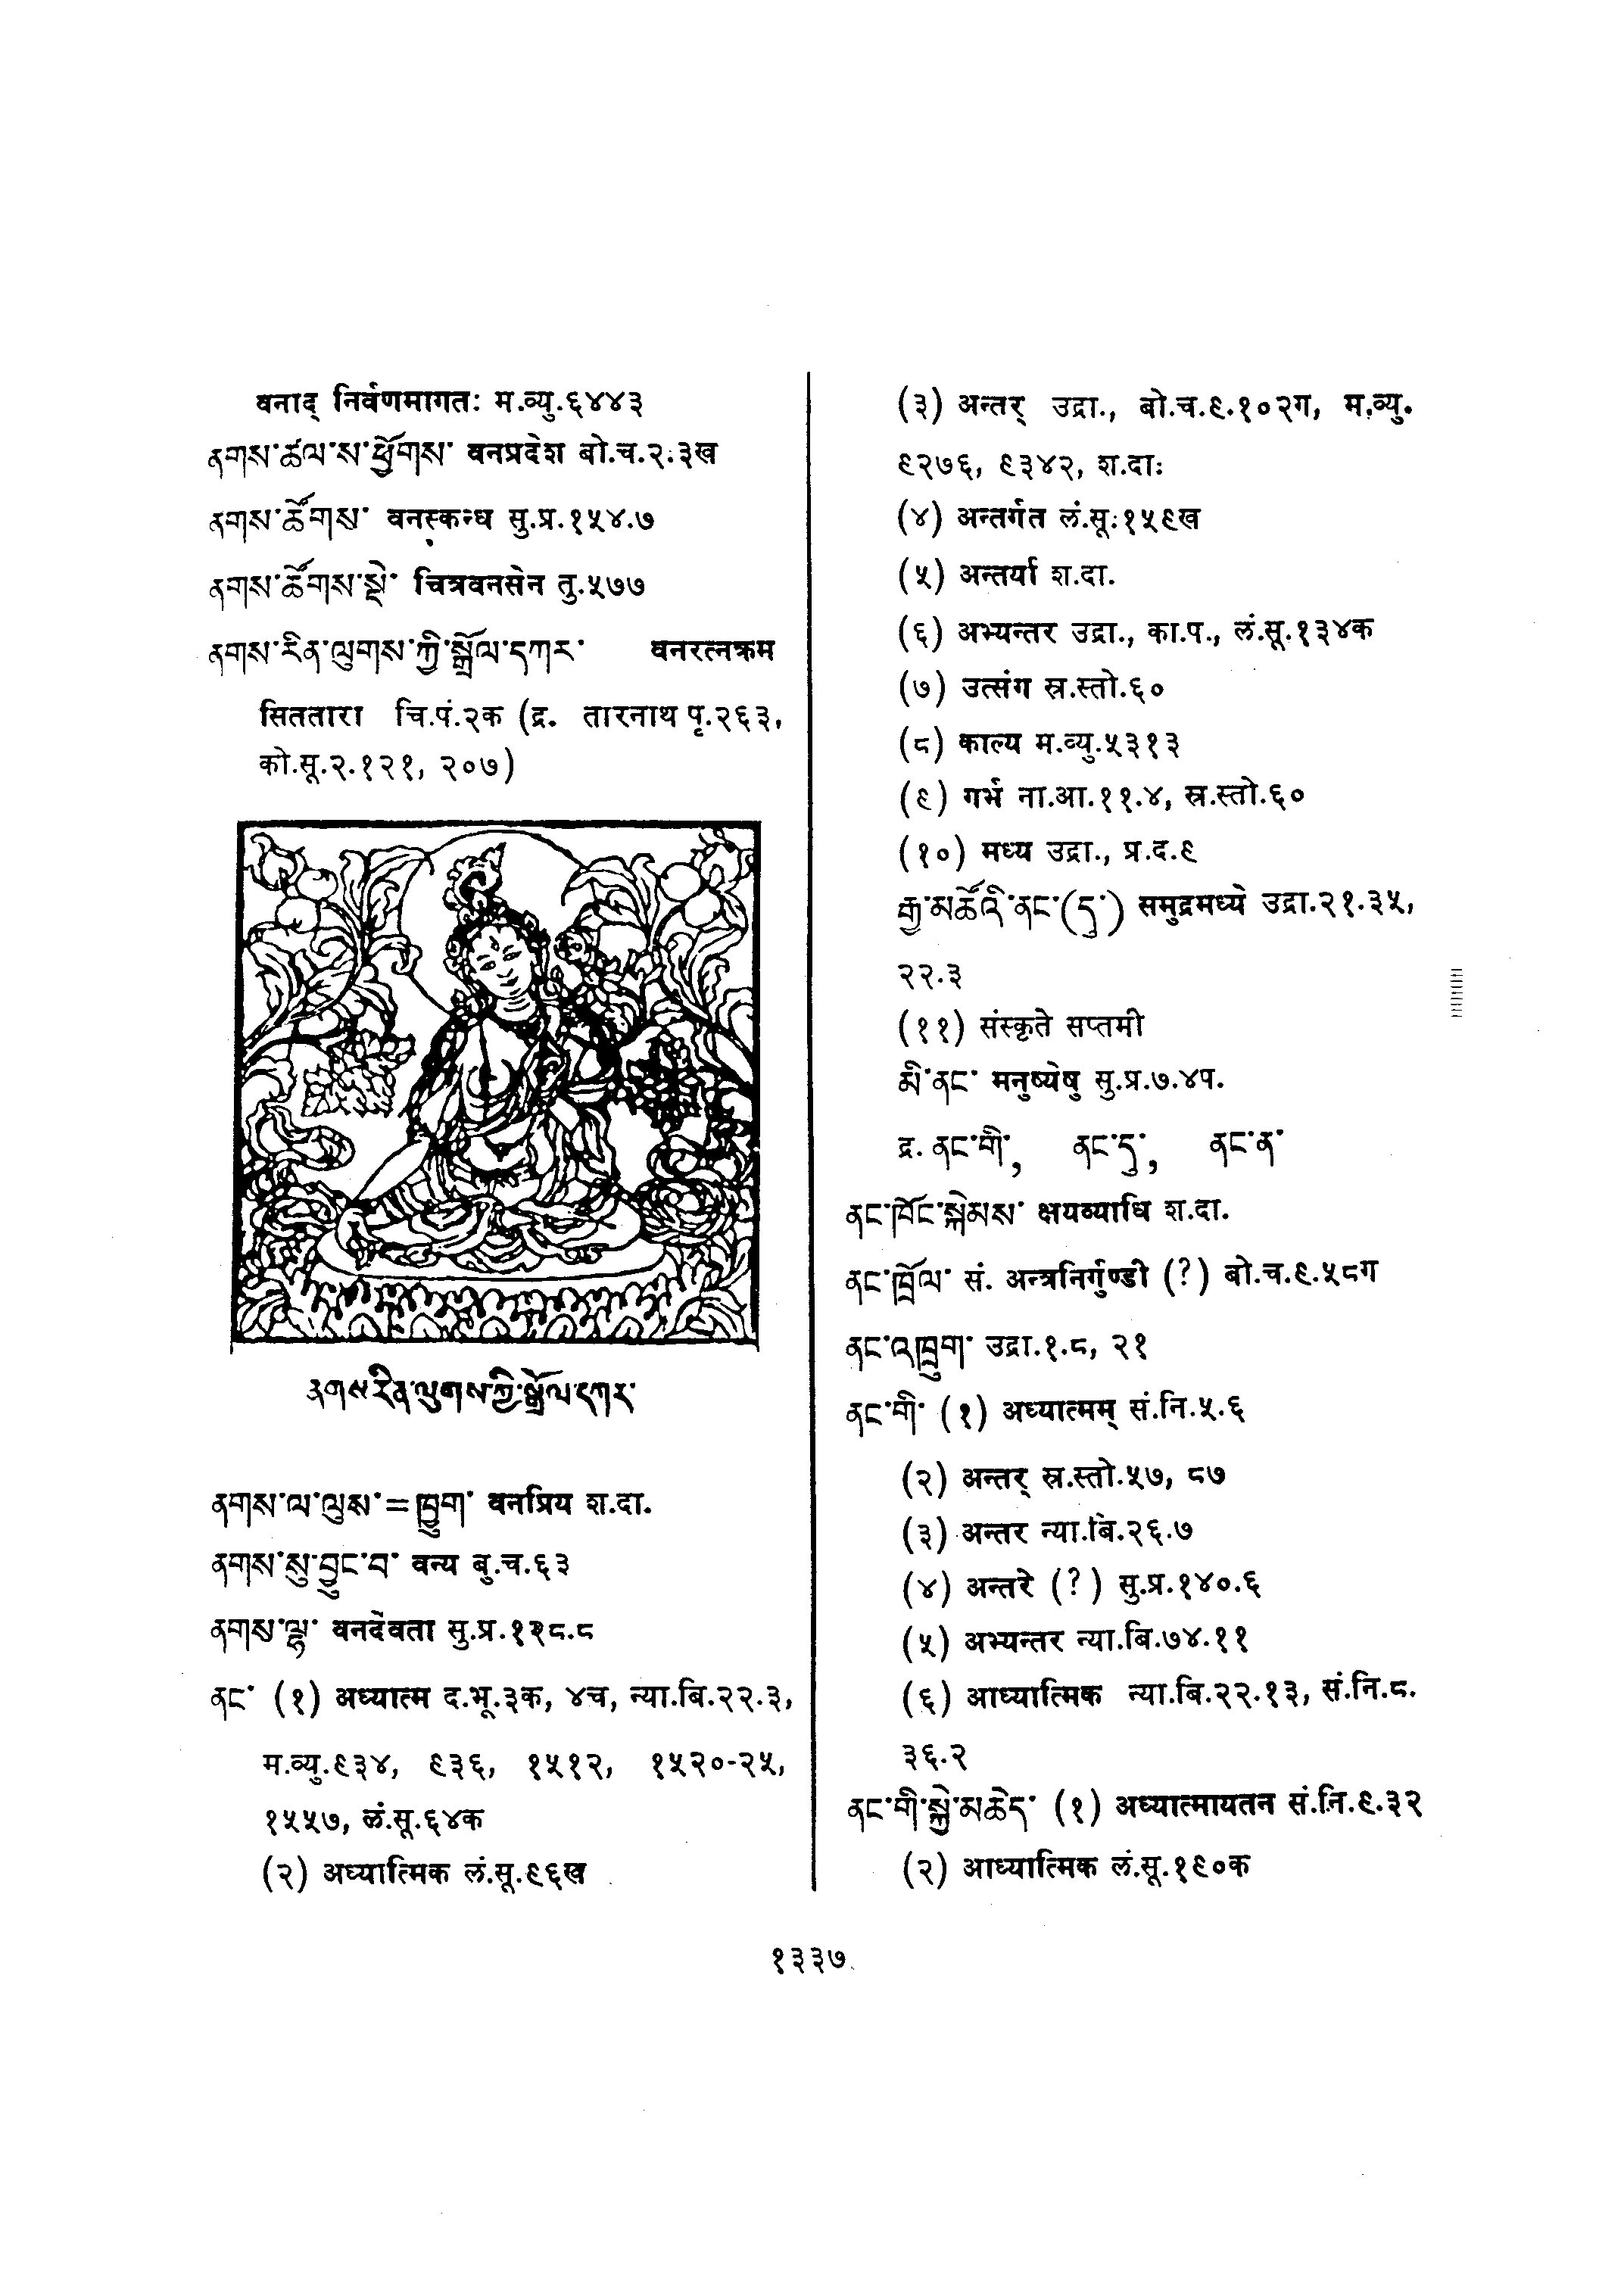 वनाद् निर्वणमागतः म.व्यु.६४४३
ནགས་ཚལ་ས་ཕྱོགས་ वनप्रदेश बो.च.२.३ख
ནགས་ཚོགས་ वनस्कन्ध सु.प्र.१५४.७
ནགས་ཚོགས་སྡེ་ चित्रवनसेन तु.५७७
ནགས་རིན་ལུགས་ཀྱི་སྒྲོལ་དཀར་ वनरत्नक्रम
सिततारा चि.पं.२क (द्र. तारनाथ पृ.२६३,
को.सू.२.१२१, २०७)
ནགས་རིན་ལུགས་ཀྱི་སྒྲོལ་དཀར་
ནགས་ལ་ལུས་=ཁྱུག་ वनप्रिय श.दा.
ནགས་སུ་བྱུང་བ་ वन्य बु.च.६३
ནགས་ལྷ་ वनदेवता सु.प्र.१२८.८
ནང་ (१) अध्यात्म द.भू.३क, ४च, न्या.बि.२२.३,
म.व्यु.९३४, ९३६, १५१२, १५२०-२५,
१५५७, लं.सू.६४क
(२) अध्यात्मिक लं.सू.९६ख
(३) अन्तर् उद्रा., बो.च.९.१०२ग, म.व्यु.
९२७६, ९३४२, श.दाः
(४) अन्तर्गत लं.सू.१५९ख
(५) अन्तर्या श.दा.
(६) अभ्यन्तर उद्रा., का.प., लं.सू.१३४क
(७) उत्संग स्र.स्तो.६०
(८) काल्य म.व्यु.५३१३
(९) गर्भ ना.आ.११.४, स्र.स्तो.६०
(१०) मध्य उद्रा., प्र.द.९
རྒྱ་མཚོའི་ནང་(དུ་) समुद्रमध्ये उद्रा.२१.३५,
२२.३
(११) संस्कृते सप्तमी
མི་ནང་ मनुष्येषु सु.प्र.७.४प.
द्र. ནང་གི་, ནང་དུ་, ནང་ན་
ནང་ཁོང་སྐེམས་ क्षयव्याधि श.दा.
ནང་ཁྲོལ་ सं. अन्त्रनिर्गुण्डी (?) बो.च.९.५८ग
ནང་འཁྲུག་ उद्रा.१.८, २१
ནང་གི་ (१) अध्यात्मम् सं.नि.५.६
(२) अन्तर् स्र.स्तो.५७, ८७
(३) अन्तर न्या.बि.२६.७
(४) अन्तरे (?) सु.प्र.१४०.६
(५) अभ्यन्तर न्या.बि.७४.११
(६) आध्यात्मिक न्या.बि.२२.१३, सं.नि.८.
३६.२
ནང་གི་སྐྱེ་མཆེད་ (१) अध्यात्मायतन सं.नि.९.३२
(२) आध्यात्मिक लं.सू.१९०क
१३३७